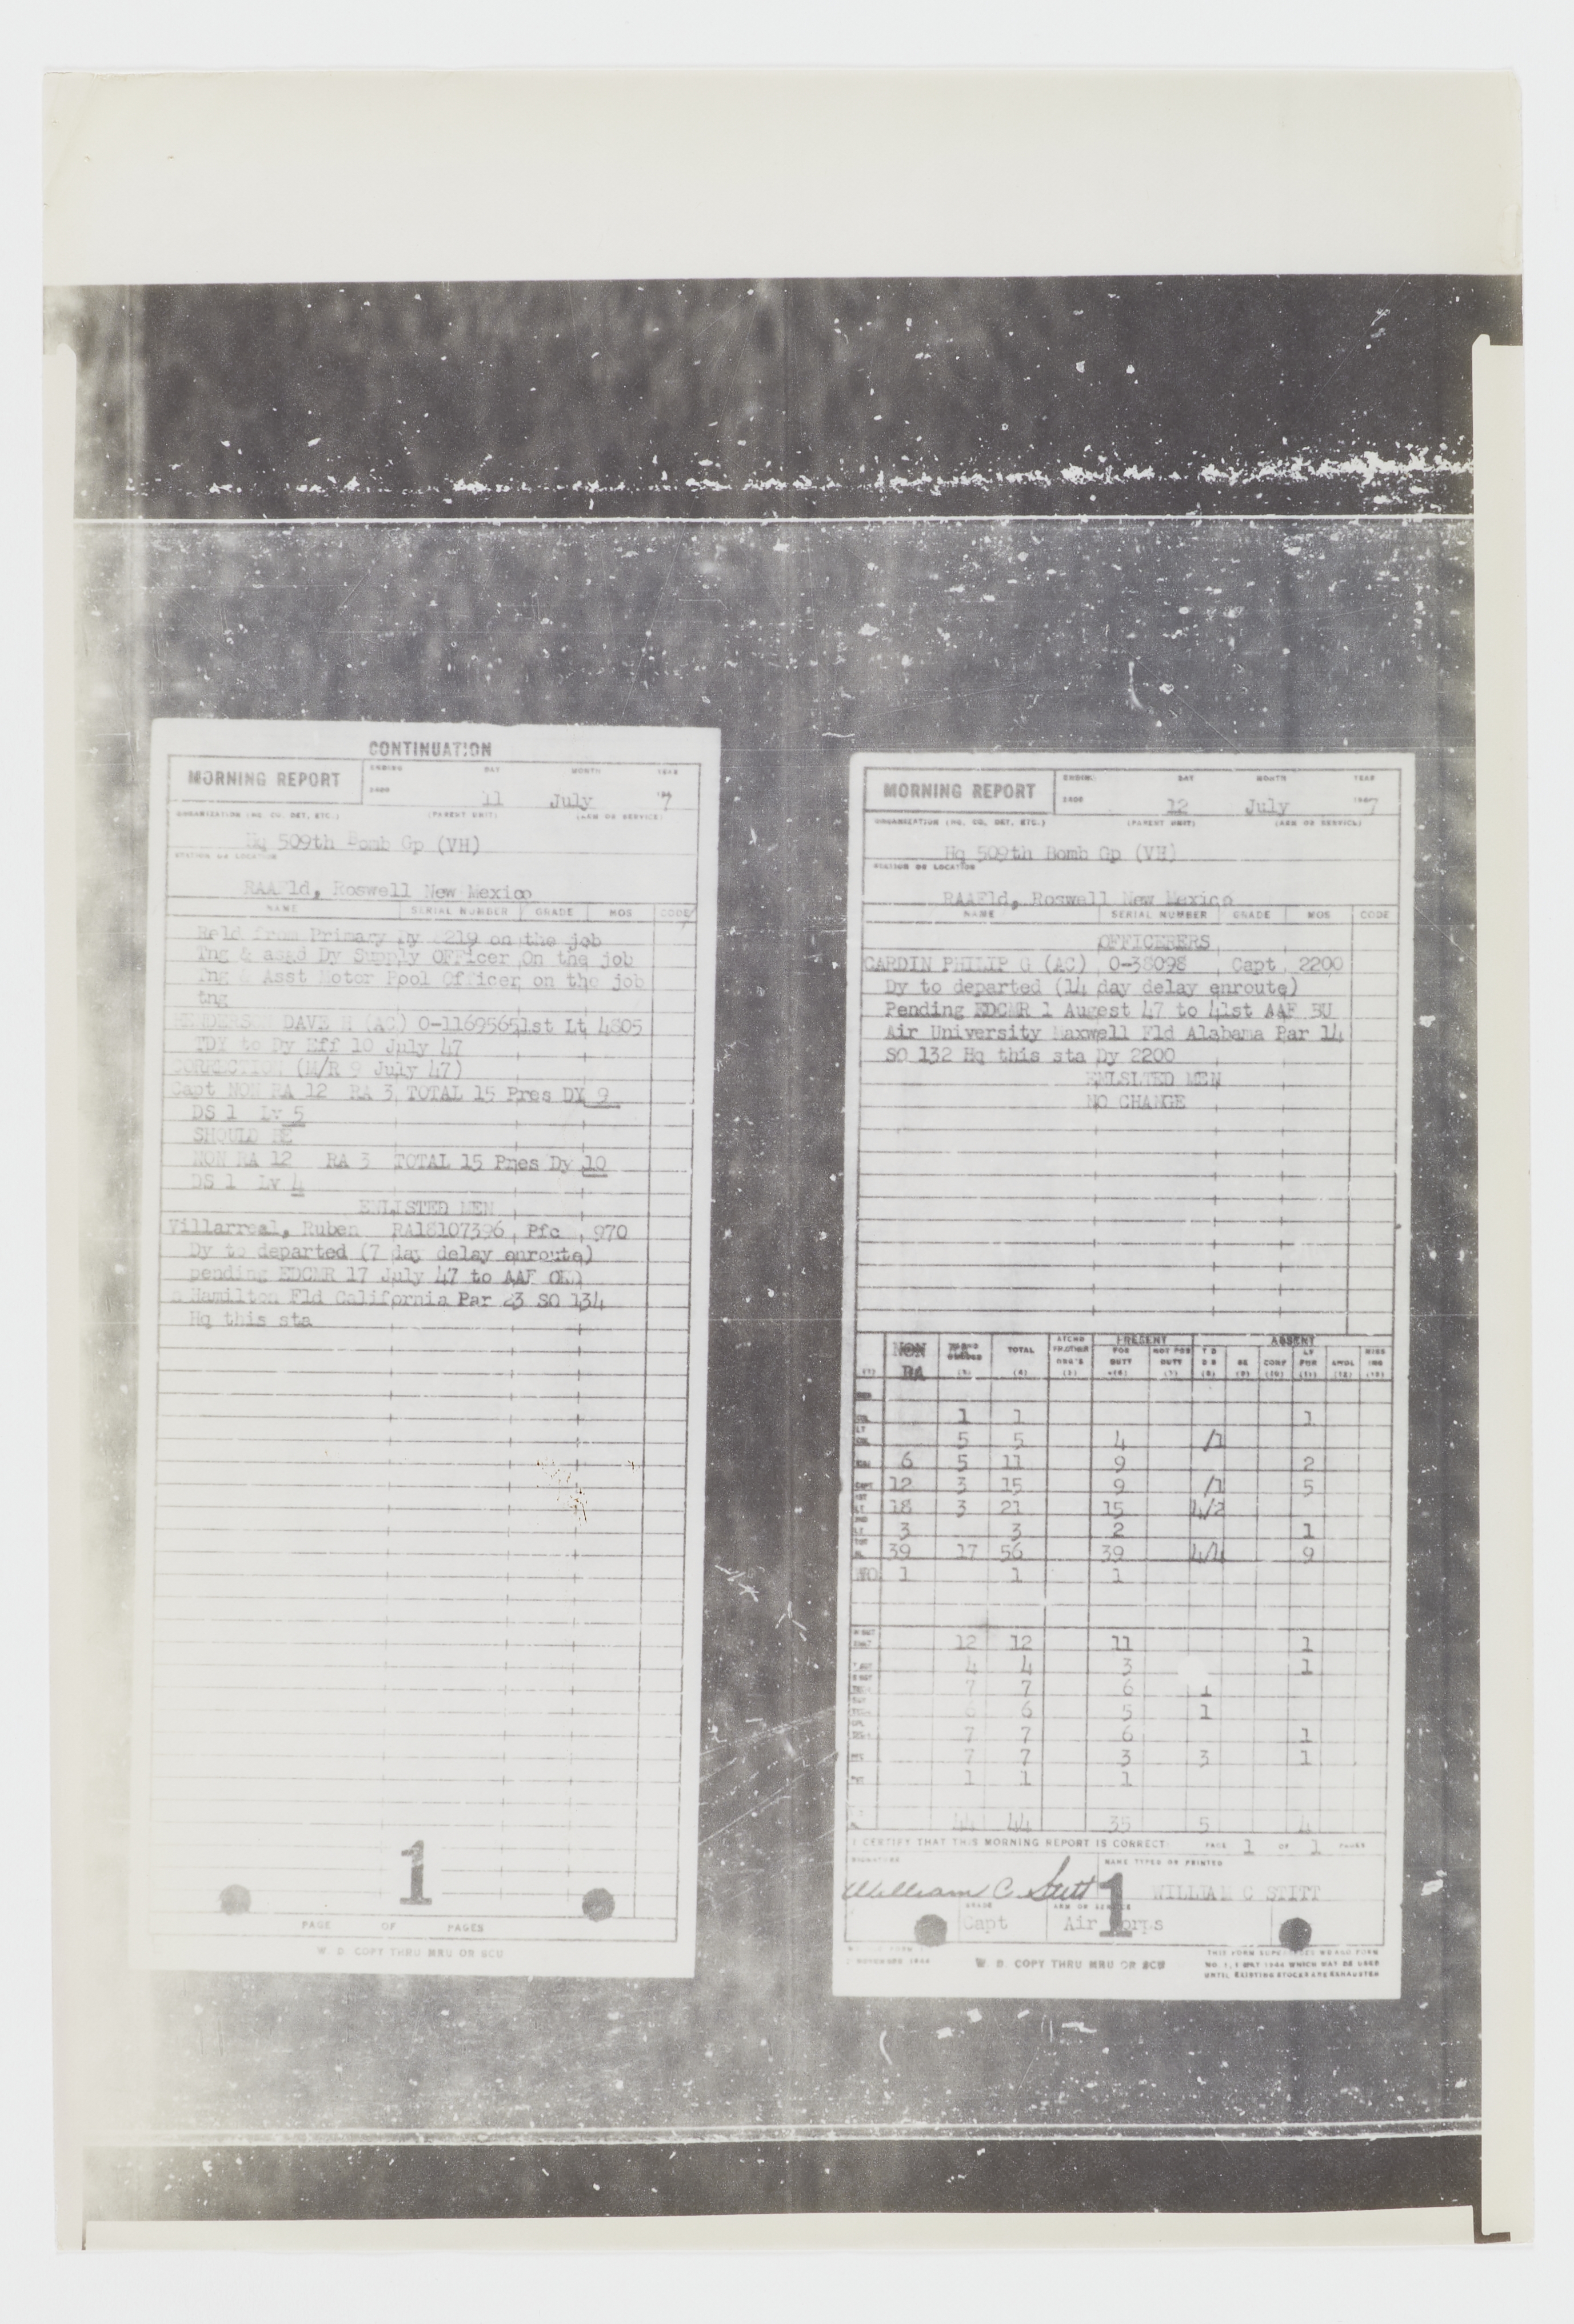 CONTINUATION
MORNING REPORT
ENDING DAY MONTH YEAR
2400 11 July 7
ORGANIZATION (HQ. CO. DET, ETC.) (PARENT UNIT) (ARM OR SERVICE)
Hq 509th Bomb Gp (VH)
STATION OR LOCATION
RAAFld, Roswell New Mexico
NAME SERIAL NUMBER GRADE MOS CODE
Reld from Primary Dy 219 on the job
Tng & asgd Dy Supply OFficer On the job
Tng & Asst Motor Pool Officer on the job
tng
DAVE H (AC) 0-1169565 1st Lt 4805
TDY to Dy Eff 10 July 47
CORRECTION (M/R 9 July 47)
Capt NON RA 12 RA 3 TOTAL 15 Pres DY 9
DS 1 Lv 5
SHOULD BE
NON RA 12 RA 3 TOTAL 15 Pres Dy 10
DS 1 Lv 4
ENLISTED MEN
Villarreal, Ruben RA18107396, Pfc , 970
Dy to departed (7 day delay enroute)
pending EDCMR 17 July 47 to AAF
Hamilton Fld California Par 23 SO 134
Hq this sta
1
PAGE OF PAGES
W. D. COPY THRU MRU OR SCU
MORNING REPORT
ENDING DAY MONTH YEAR
2400 12 July 7
ORGANIZATION (HQ. CO. DET, ETC.) (PARENT UNIT) (ARM OR SERVICE)
Hq 509th Bomb Gp (VH)
STATION OR LOCATION
RAAFld, Roswell New Mexico
NAME SERIAL NUMBER GRADE MOS CODE
OFFICERERS
CARDIN PHILIP G (AC) 0-38098 Capt 2200
Dy to departed (14 day delay enroute)
Pending EDCMR 1 Augest 47 to 41st AAF BU
Air University Maxwell Fld Alabama Par 14
SO 132 Hq this sta Dy 2200
ENLSLTED MEN
NO CHANGE
PRESENT ABSENT
NON RA TOTAL ATCHD FR OTHER ORG'S FOR DUTY NOT FOR DUTY T D D S SK CONF LV FUR AWOL MISS ING
(1) (3) (4) (5) (6) (7) (8) (9) (10) (11) (12) (13)
COL 1 1 1
LT COL 5 5 4 /1
MAJ 6 5 11 9 2
CAPT 12 3 15 9 /1 5
1ST LT 18 3 21 15 4/2
2ND LT 3 3 2 1
TOT AL 39 17 56 39 4/4 9
WO 1 1 1
12 12 11 1
T SGT 4 4 3 1
7 7 6 1
6 6 5 1
7 7 6 1
PFC 7 7 3 3 1
PVT 1 1 1
44 44 35 5 4
I CERTIFY THAT THIS MORNING REPORT IS CORRECT PAGE 1 OF 1 PAGES
SIGNATURE NAME TYPED OR PRINTED
William C. Stitt WILLIAM C STITT
1
GRADE ARM OR SERVICE
Capt Air Corps
NOVEMBER 1944 W. D. COPY THRU MRU OR SCU
THIS FORM SUPERSEDES WD AGO FORM
NO. 1, 1 MAY 1944 WHICH MAY BE USED
UNTIL EXISTING STOCKS ARE EXHAUSTED